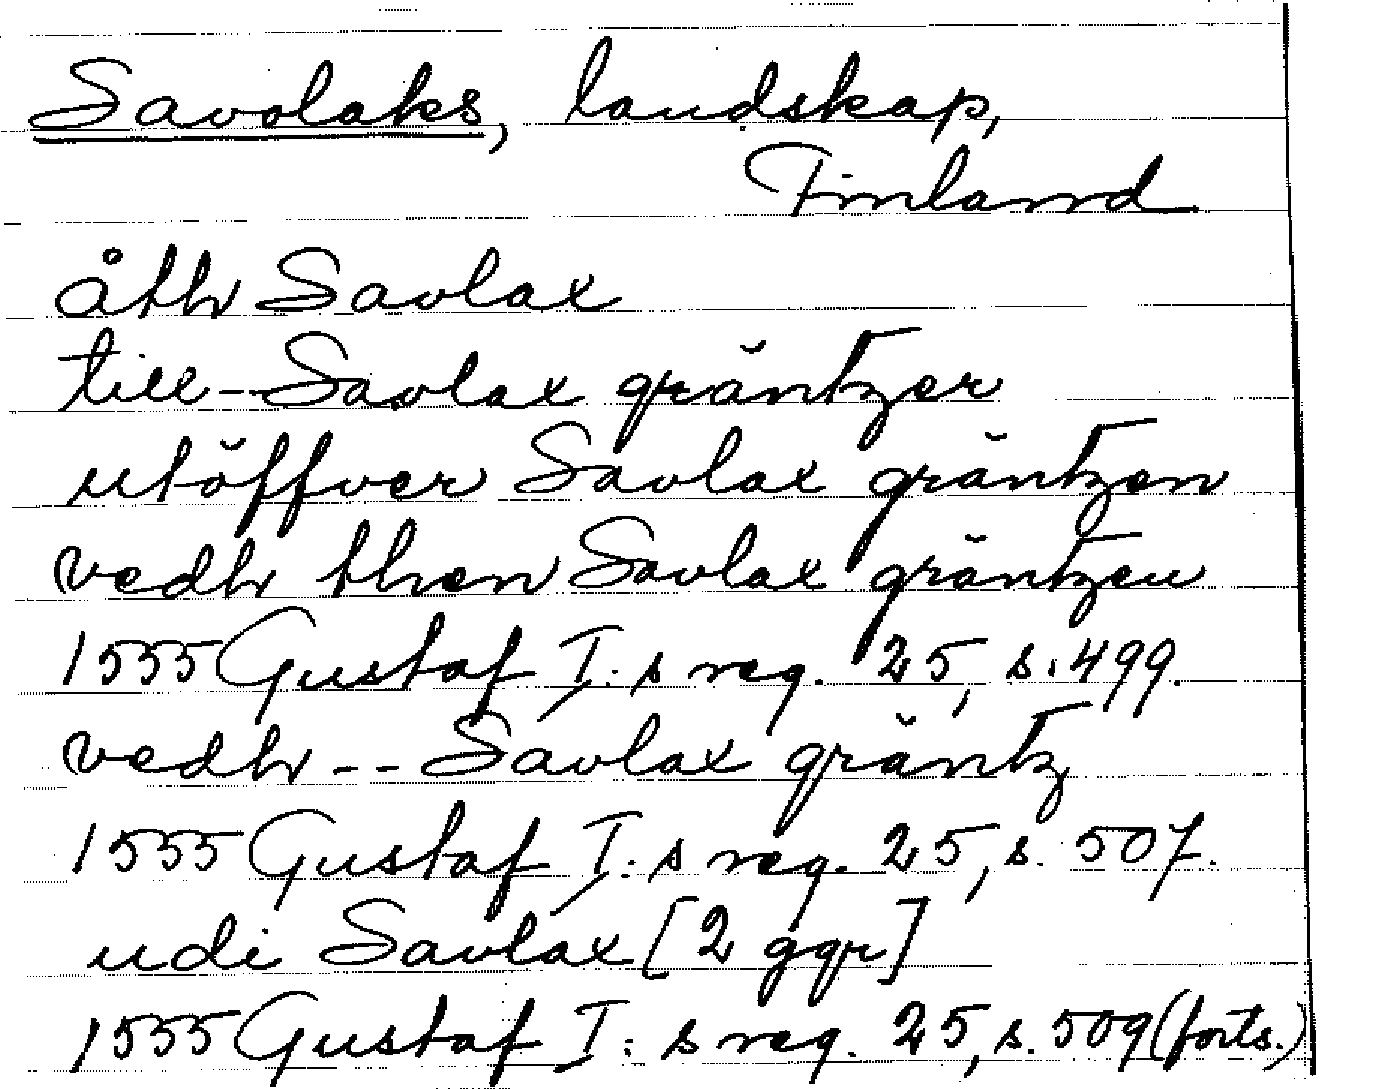 Savolaks, landskap,
Finland
åth Savlax
till -- Savlax gräntzer
utöffver Savlax gräntzen
vedh then Savlax gräntzen
1555 Gustaf I:s reg. 25, s. 499.
vedh -- Savlax gräntz
1555 Gustaf I:s reg. 25, s. 507.
udi Savlax [2 ggr]
1555 Gustaf I:s reg. 25, s. 509 (forts.)